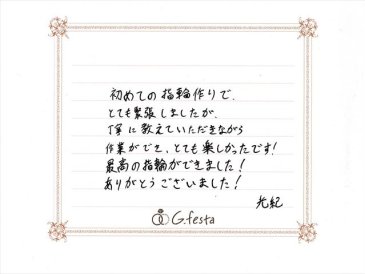 初めての指輪作りで、
とても緊張しましたが、
丁寧に教えていただきながら
作業ができ、とても楽しかったです!
最高の指輪ができました!
ありがとうございました!
光紀
G.festa